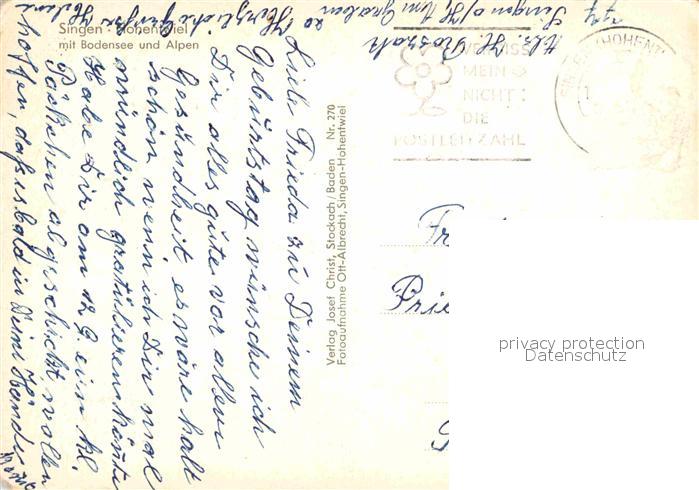 Singen - Hohentwiel
mit Bodensee und Alpen
Liebe Frieda zu Deinem
Geburtstag wünsche ich
Dir alles gute vor allem
Gesundheit es wäre halt
schön wenn ich Dir mal
mündlich gratulieren könnte
Habe Dir am 12.9. ein kl.
Päckchen abgeschickt wollen
hoffen, daß es bald in Deine Hände
Herzliche Grüße
Verlag Josef Christ, Stockach/Baden Nr. 270
Fotoaufnahme Ott-Albrecht, Singen-Hohentwiel
Abs. H.
Singen a/H,
VERGISS
MEIN
NICHT:
DIE
POSTLEITZAHL
SINGEN (HOHENT
Fr
Prie
privacy protection
Datenschutz